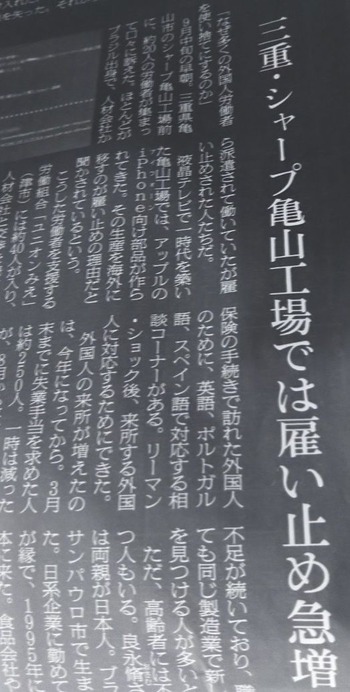 三重・シャープ亀山工場では雇い止め急増
「なぜ多くの外国人労働者
を使い捨てにするのか」
9月中旬の早朝。三重県亀
山市のシャープ亀山工場前
に、約30人の労働者が集まっ
て口々に訴えた。ほとんどが
ブラジル出身で、人材会社か
ら派遣されて働いていたが雇
い止めされた人たちだ。
液晶テレビで一時代を築い
た亀山工場では、アップルの
iPhone向け部品が作ら
れてきた。その生産を海外に
移すのが雇い止めの理由だと
聞かされているという。
こうした労働者を支援する
労働組合「ユニオンみえ」
(津市)には約40人が入り、
人材会社と交渉を
保険の手続きで訪れた外国人
のために、英語、ポルトガル
語、スペイン語で対応する相
談コーナーがある。リーマン
・ショック後、来所する外国
人に対応するためにできた。
外国人の来所が増えたの
は、今年になってから。3月
末までに失業手当を求めた人
は約250人。一時は減った
が、8月
不足が続いており、
ても同じ製造業で新
を見つける人が多いと
ただ、高齢者には
つ人もいる。良永
は両親が日本人。ブラ
サンパウロ市で生ま
た。日系企業に勤めて
が縁で、1995年に
本に来た。食品会社や
を失った。